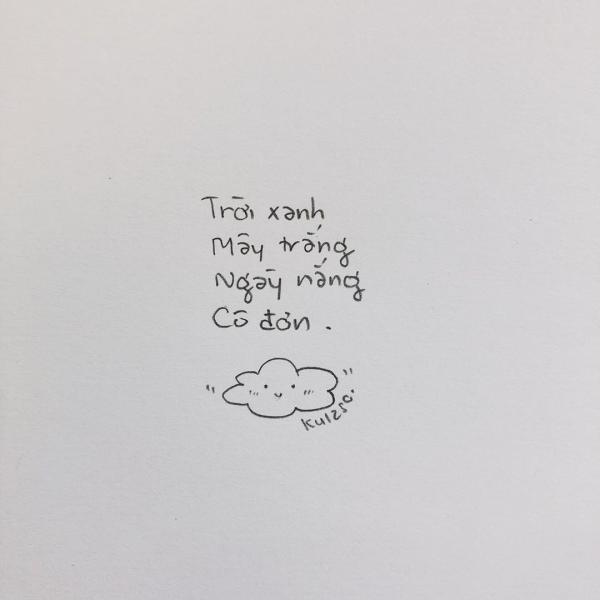 Trời xanh
Mây trắng
Ngày nắng
Cô đơn .